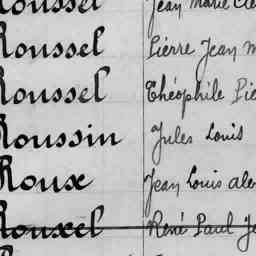 Roussel Jean Marie
Roussel Pierre Jean
Roussel Théophile
Roussin Jules Louis
Roux Jean Louis
Rouxel René Paul